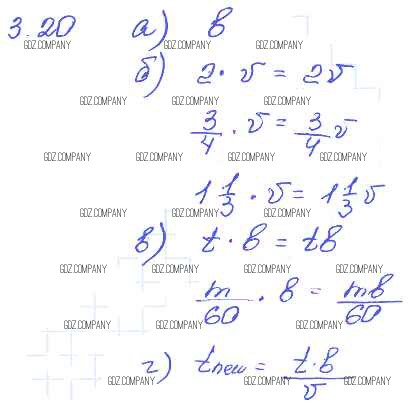 3.20 а) в
GDZ.COMPANY GDZ.COMPANY GDZ.COMPANY
б) 2 · v = 2v
GDZ.COMPANY GDZ.COMPANY GDZ.COMPANY
3/4 · v = 3/4 v
GDZ.COMPANY GDZ.COMPANY GDZ.COMPANY GDZ.COMPANY
1 1/3 · v = 1 1/3 v
GDZ.COMPANY GDZ.COMPANY GDZ.COMPANY
в) t · в = tв
GDZ.COMPANY GDZ.COMPANY GDZ.COMPANY GDZ.COMPANY
m/60 · в = mв/60
GDZ.COMPANY GDZ.COMPANY GDZ.COMPANY GDZ.COMPANY
г) tnew = t·в/v
GDZ.COMPANY GDZ.COMPANY GDZ.COMPANY